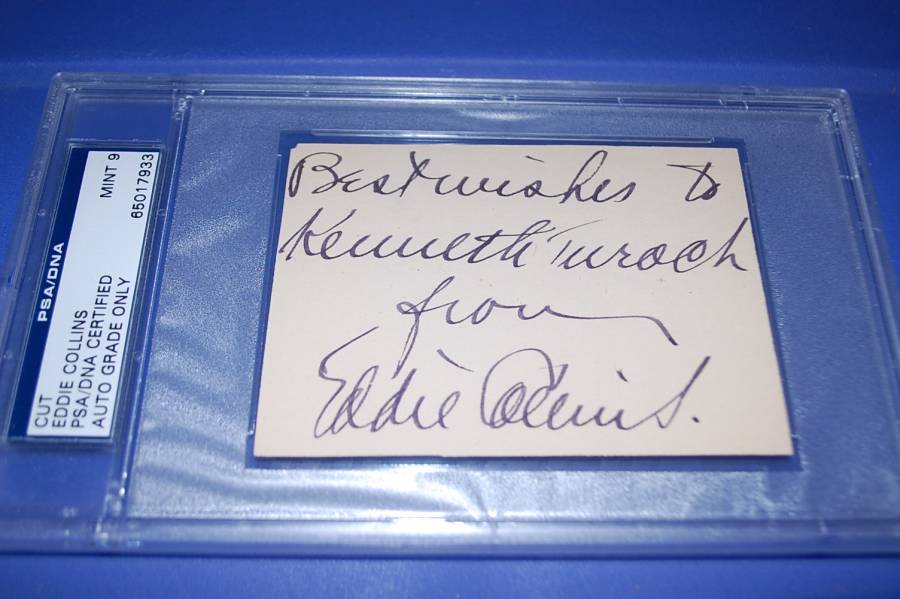 PSA/DNA
CUT
EDDIE COLLINS
PSA/DNA CERTIFIED
AUTO GRADE ONLY
MINT 9
65017933
Best wishes to
Kenneth Turoch
from
Eddie Collins.